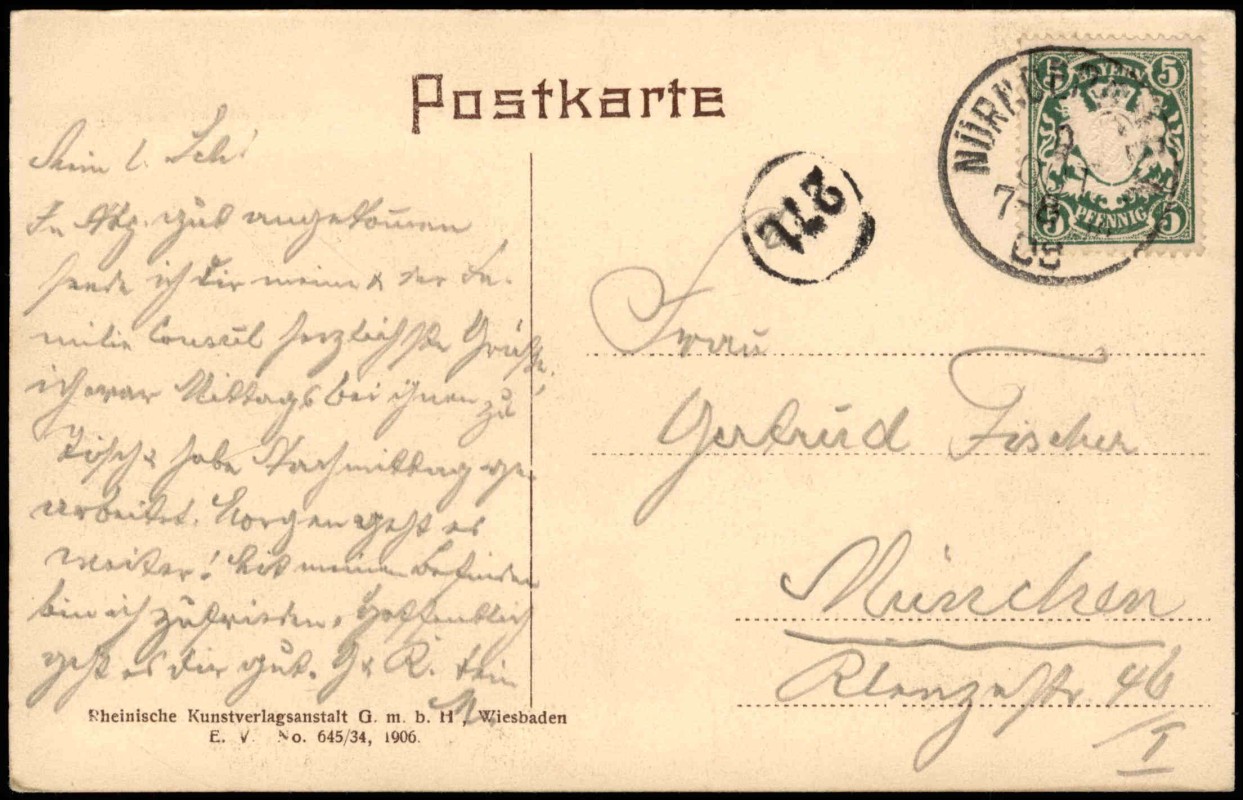 Postkarte
Mein l. Sch!
In Nbg. gut angekommen
sende ich Dir meine & der Fa-
milie Consul herzlichste Grüße,
ich war Mittags bei ihnen zu
Tisch & habe Nachmittag ge-
arbeitet. Morgen geht es
weiter! Mit meinem Befinden
bin ich zufrieden. Hoffentlich
geht es Dir gut. G & K. Dein
M.
Rheinische Kunstverlagsanstalt G. m. b. H., Wiesbaden
E. V. No. 645/34, 1906.
NÜRNBERG
7-8
08
5 5
BAYERN
PFENNIG
5 5
Frau
Gertrud Fischer
München
Klenzestr. 46
/I